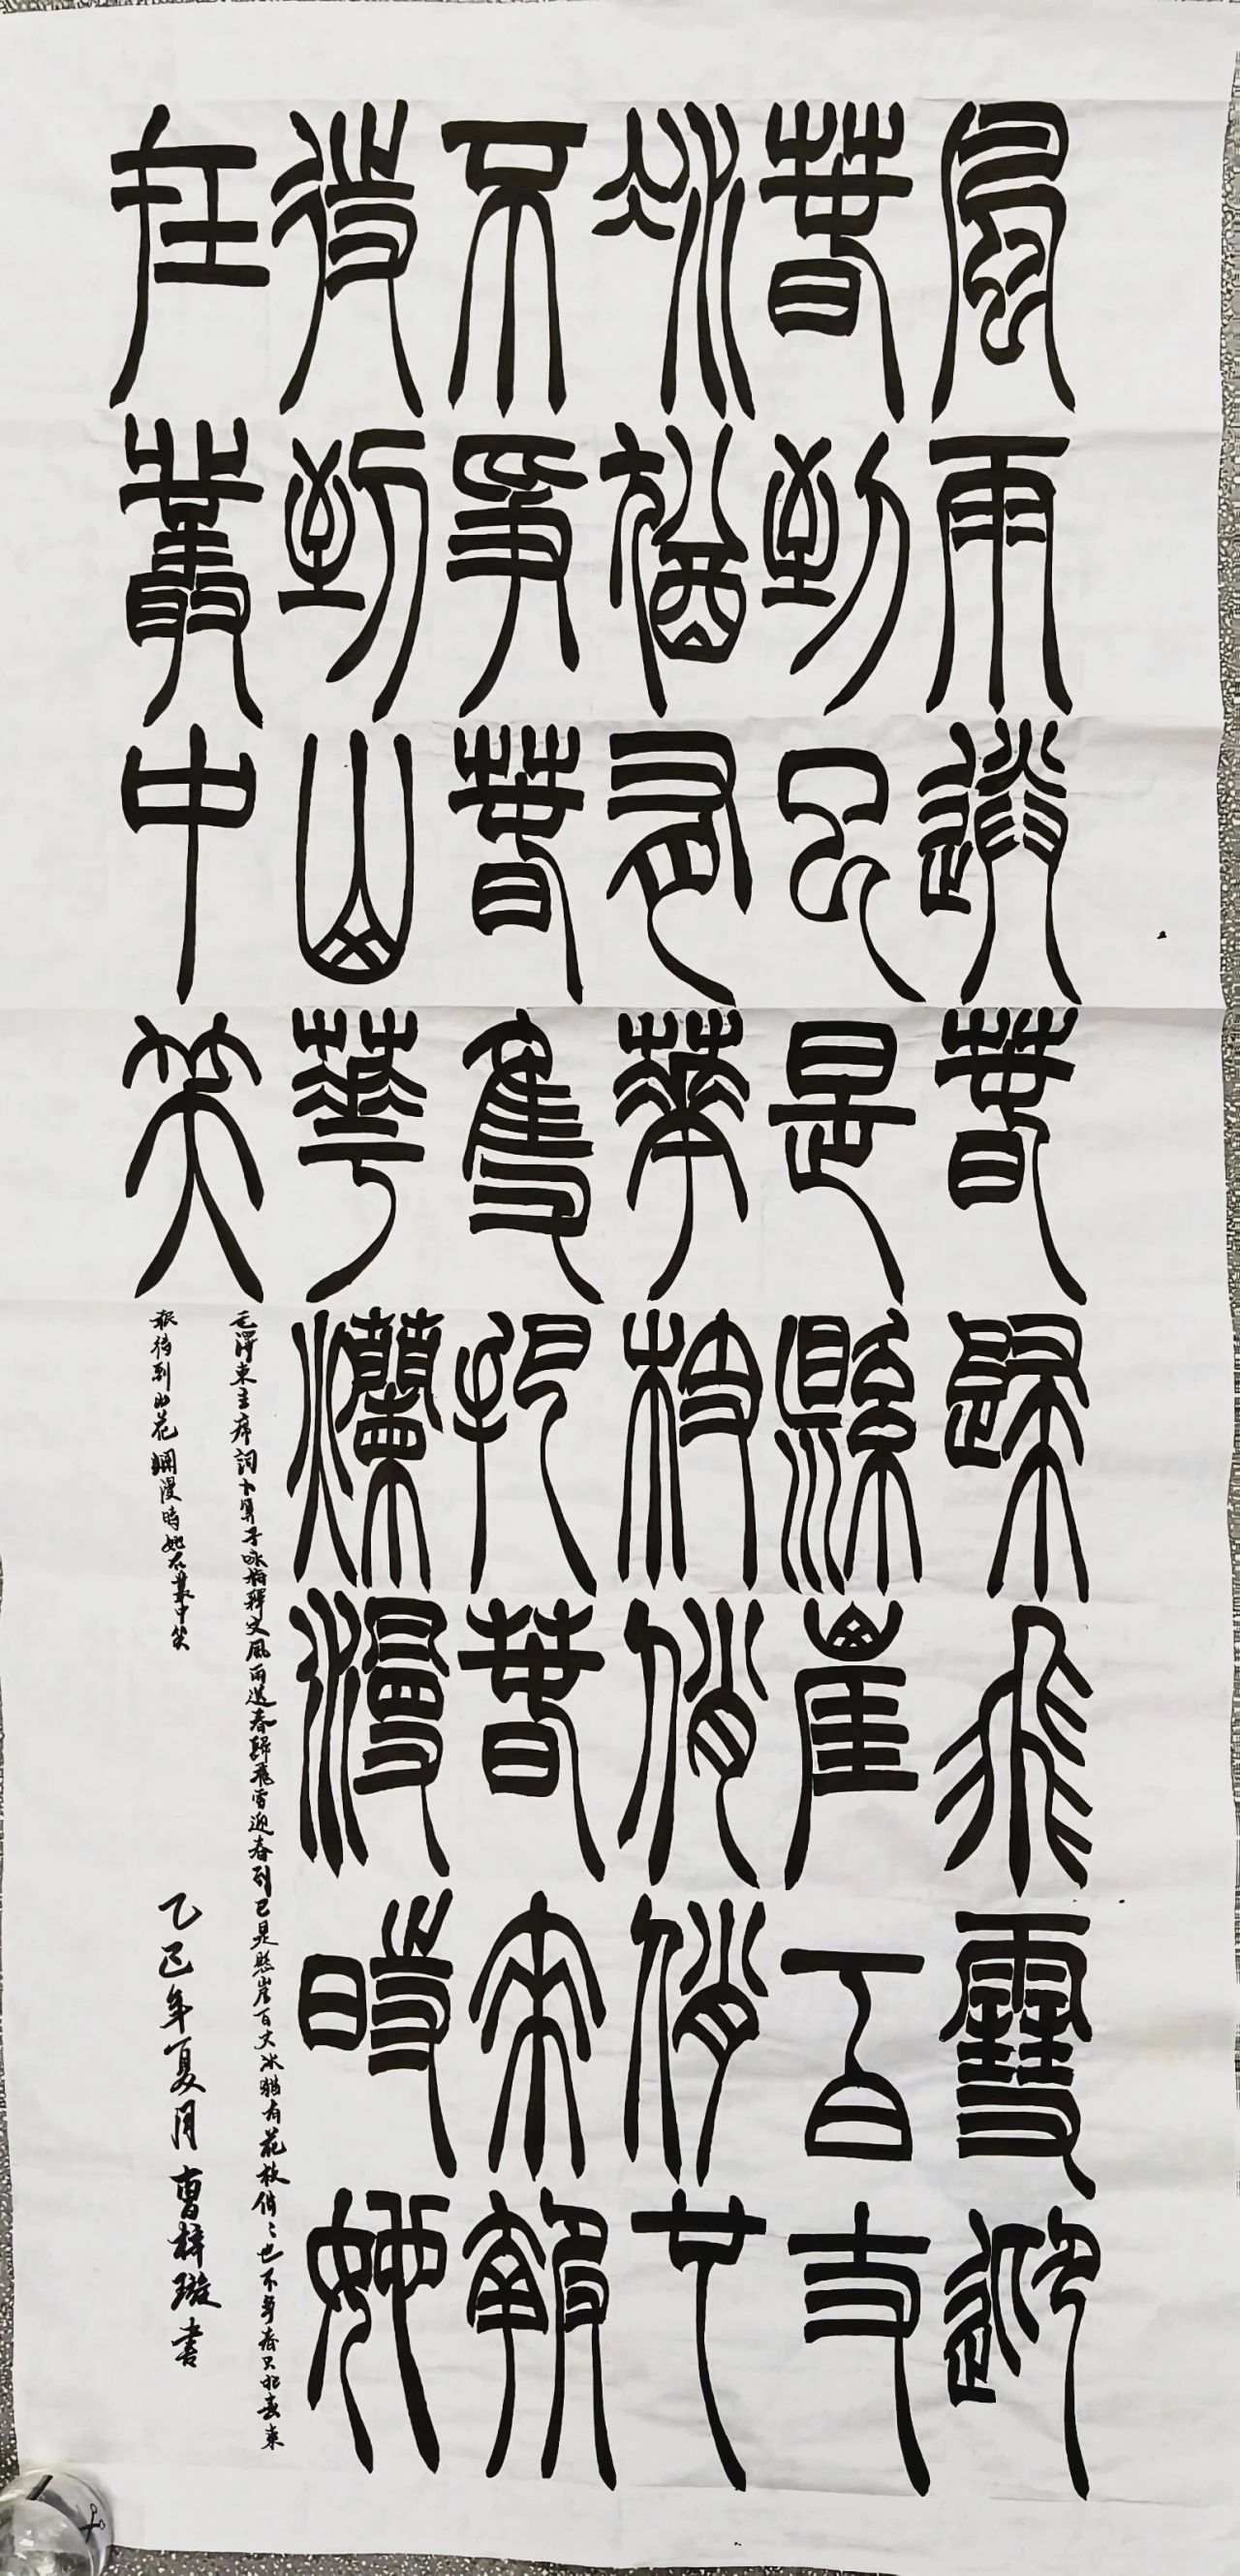 風雨送春歸飛雪迎
春到已是懸崖百丈
冰猶有華枝俏俏也
不爭春隻把春來報
待到山華爤漫時她
在叢中笑
毛澤東主席詞卜算子咏梅釋文風雨送春歸飛雪迎春到已是懸崖百丈冰猶有花枝俏〻也不爭春只把春來
報待到山花爛漫時她在叢中笑
乙巳年夏月曹梓璇書